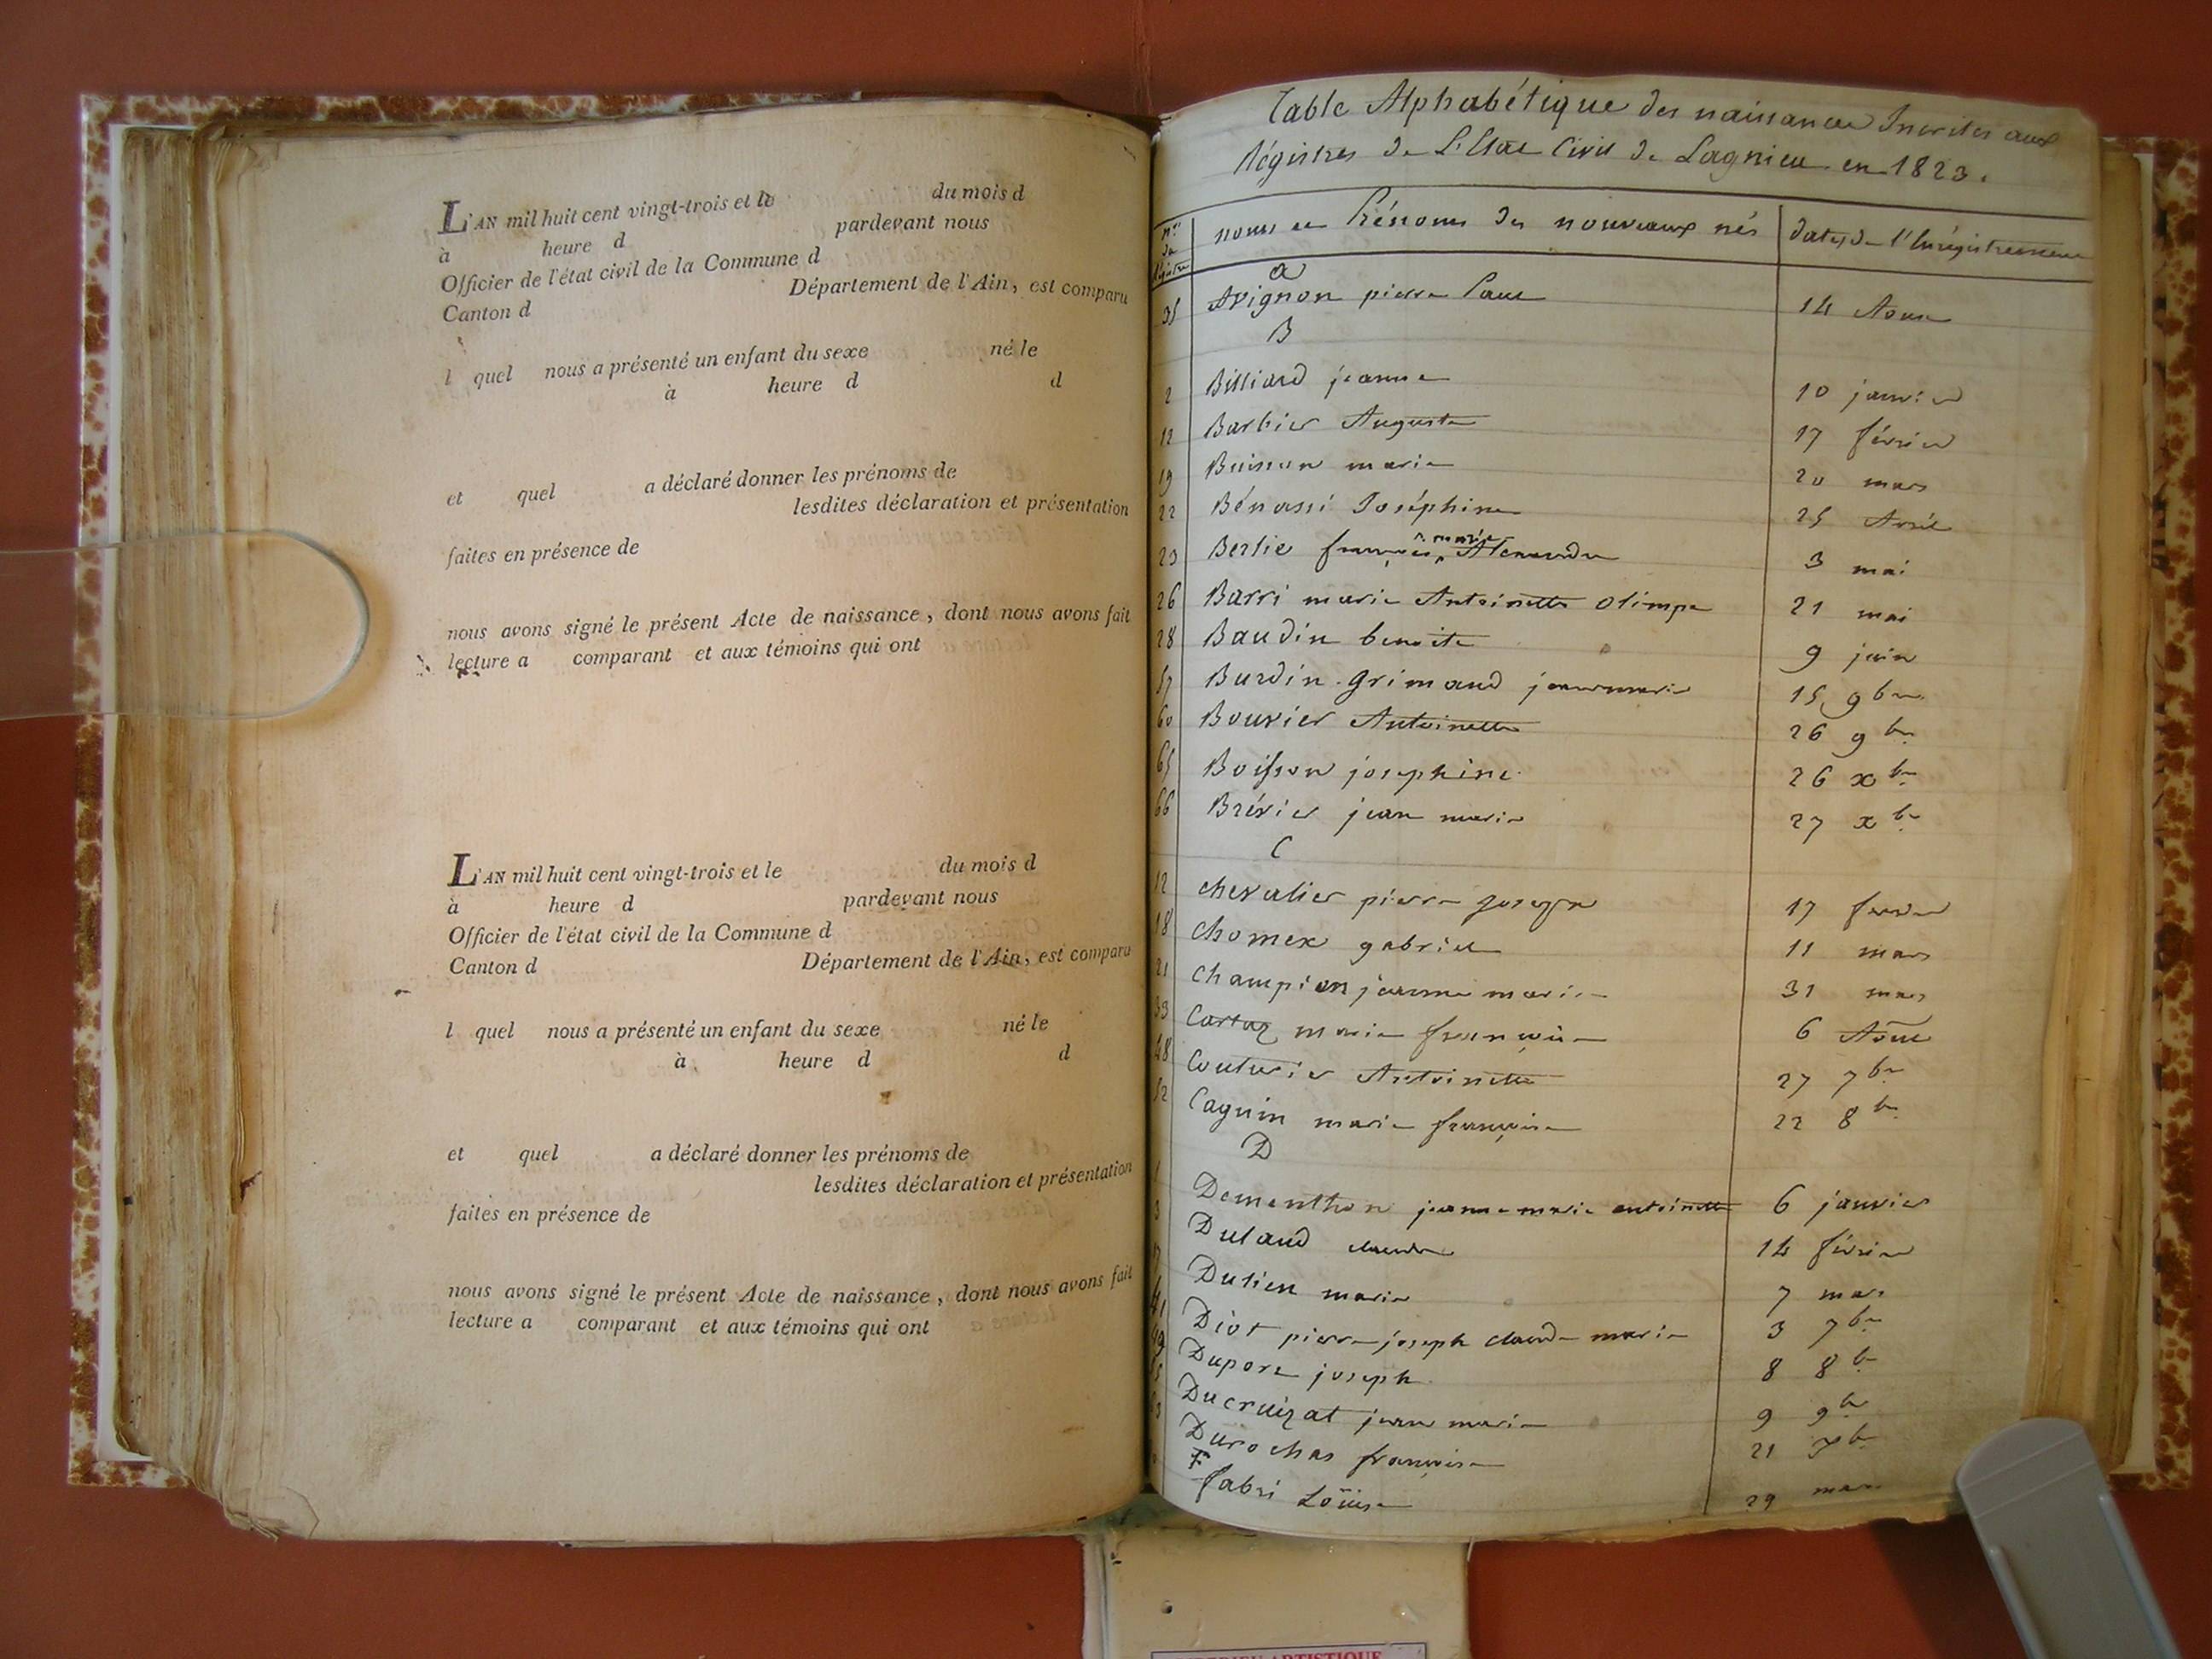 L'AN mil huit cent vingt-trois et le du mois d
à heure d pardevant nous
Officier de l'état civil de la Commune d
Canton d Département de l'Ain, est comparu
l quel nous a présenté un enfant du sexe né le
à heure d d
et quel a déclaré donner les prénoms de
lesdites déclaration et présentation
faites en présence de
nous avons signé le présent Acte de naissance, dont nous avons fait
lecture a comparant et aux témoins qui ont
L'AN mil huit cent vingt-trois et le du mois d
à heure d pardevant nous
Officier de l'état civil de la Commune d
Canton d Département de l'Ain, est comparu
l quel nous a présenté un enfant du sexe né le
à heure d d
et quel a déclaré donner les prénoms de
lesdites déclaration et présentation
faites en présence de
nous avons signé le présent Acte de naissance, dont nous avons fait
lecture a comparant et aux témoins qui ont
Table Alphabétique des naissances Inscrites aux
Régistres de L'Etat Civil de Lagnieu en 1823.
nos du Régistre noms et Prénoms des nouveaux nés dates de l'Enrégistrement
a
35 Avignon pierre Paul 14 Aout
B
2 Billiard jeanne 10 janvier
12 Barbier Auguste 17 février
19 Buisson marie 20 mars
22 Bénassi Joséphine 25 Avril
23 Berlie françois marie Alexandre 3 mai
26 Barri marie Antoinette Olimpe 21 mai
28 Baudin benoite 9 juin
57 Burdin-Grimaud jeanmarie 15 9bre
60 Bouvier Antoinette 26 9bre
65 Boisson josephine 26 xbre
66 Brévier jean marie 27 xbre
C
12 chevalier pierre joseph 17 février
18 chomex gabriel 11 mars
21 Champion jeanne marie 31 mars
33 Cartaz marie françoise 6 Aout
48 Couturier Antoinette 27 7bre
52 Caguin marie françoise 22 8bre
D
1 Dementhon jeanne marie antoinette 6 janvier
3 Dulaud claude 14 février
Dulien marie 7 mars
41 Diot pierre joseph claude marie 3 7bre
49 Duport joseph 8 8bre
Ducruizat jean marie 9 9bre
Durochas françoise 21 xbre
F
fabri Loüise 29 mars
ARTISTIQUE